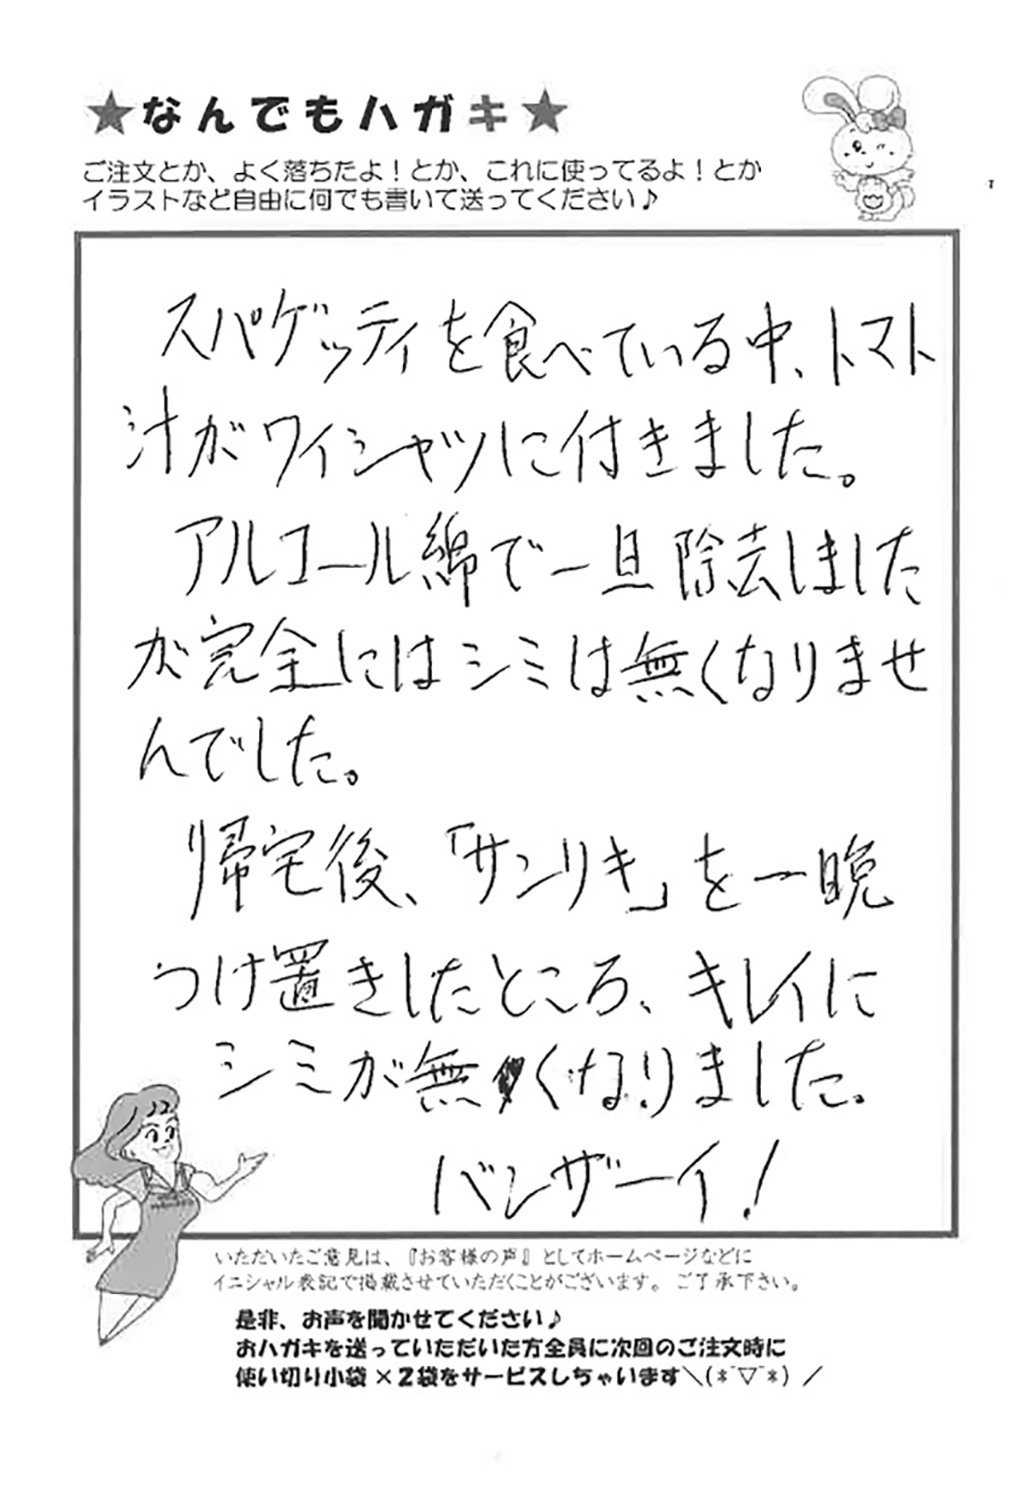 ★なんでもハガキ★
ご注文とか、よく落ちたよ！とか、これに使ってるよ！とか
イラストなど自由に何でも書いて送ってください♪
スパゲッティを食べている中、トマト
汁がワイシャツに付きました。
アルコール綿で一旦除去しました
が完全にはシミは無くなりませ
んでした。
帰宅後、「サンリキ」を一晩
つけ置きしたところ、キレイに
シミが無くなりました。
バンザーイ！
いただいたご意見は、『お客様の声』としてホームページなどに
イニシャル表記で掲載させていただくことがございます。ご了承下さい。
是非、お声を聞かせてください♪
おハガキを送っていただいた方全員に次回のご注文時に
使い切り小袋×2袋をサービスしちゃいます＼(*¯▽¯*)／